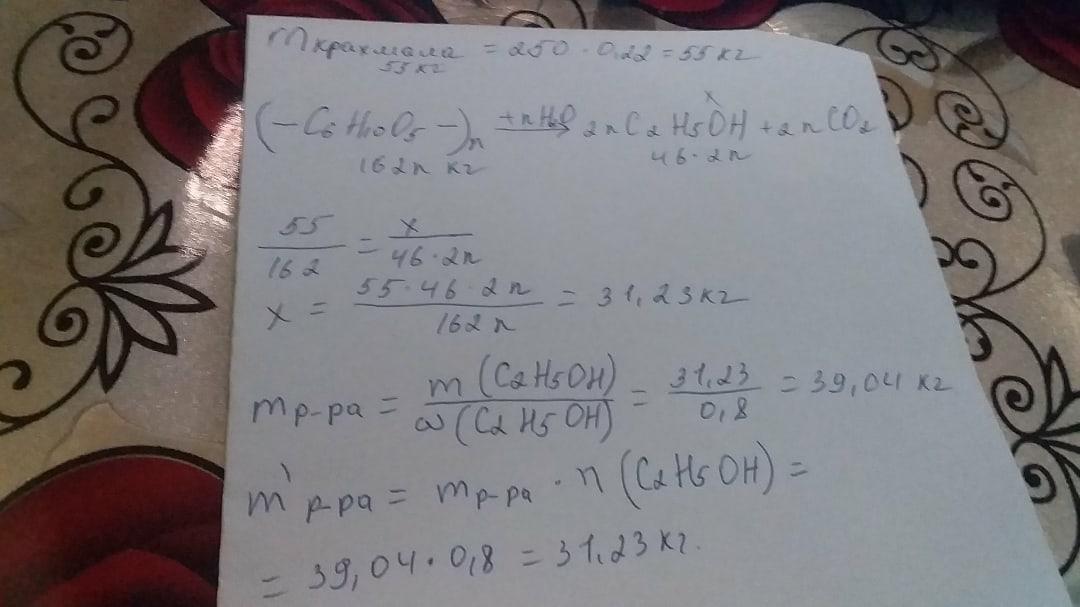 m крахмала = 250 · 0,22 = 55 кг
55 кг
x
(-C6H10O5-)n +nH2O → 2nC2H5OH + 2nCO2
162n кг 46·2n
55/162 = x/46·2n
x = 55·46·2n/162n = 31,23 кг
mр-ра = m(C2H5OH)/ω(C2H5OH) = 31,23/0,8 = 39,04 кг
m'р-ра = mр-ра · η(C2H5OH) =
= 39,04·0,8 = 31,23 кг.